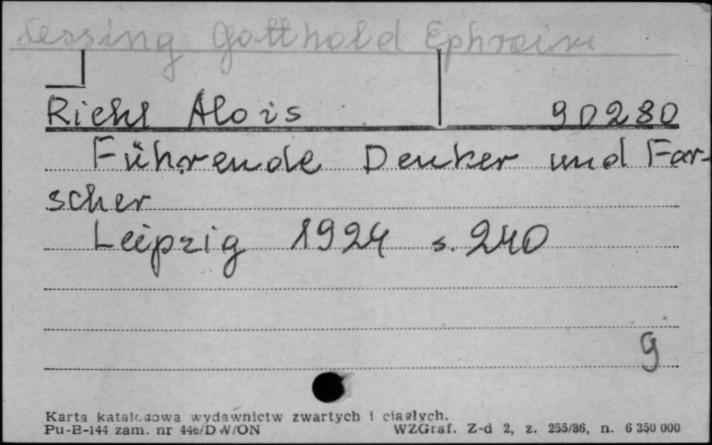 Lessing Gotthold Ephraim
Riehl Alois 90280
Führende Denker und For-
scher
Leipzig 1924 s. 240
g
Karta katalogowa wydawnictw zwartych i ciągłych.
Pu-B-144 zam. nr 446/DW/ON WZGraf. Z-d 2, z. 255/86, n. 6 350 000